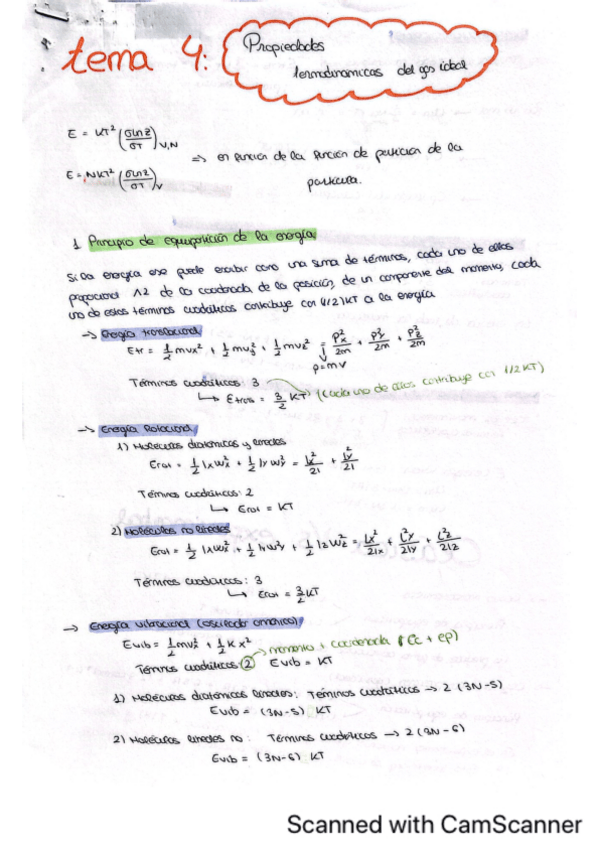 tema 4: Propiedades
termodinamicas del gas ideal
E = KT² (σlnZ/σT)V,N
=> en funcion de la funcion de particion de la
E = NKT² (σlnz/σT)V
particula.
1 Principio de equiparticion de la energía
Si la energia ese puede escribir como una suma de términos, cada uno de ellos
proporcional ^2 de la coordenada de la posición, de un componente del momento, cada
uno de estos términos cuadráticos contribuye con (1/2)KT a la energía
→ Energía translacional
Etr = 1/2 mvx² + 1/2 mvy² + 1/2 mvz² = Px²/2m + Py²/2m + Pz²/2m
p=mv
Términos cuadráticos: 3
(cada uno de ellos contribuye con 1/2KT)
↳ Etrans = 3/2 KT
→ Energía Rotacional
1) Moléculas diatomicas y lineales
Erot = 1/2 Ixwx² + 1/2 Iywy² = Lx²/2I + Ly²/2I
Términos cuadráticos: 2
↳ Erot = KT
2) Moléculas no lineales
Erot = 1/2 Ixwx² + 1/2 Iywy² + 1/2 Izwz² = Lx²/2Ix + Ly²/2Iy + Lz²/2Iz
Términos cuadráticos: 3
↳ Erot = 3/2 KT
→ Energía vibracional (oscilador armónico)
Evib = 1/2 mvx² + 1/2 Kx²
momento + coordenada (Ec + ep)
Términos cuadráticos 2 Evib = KT
1) Moléculas diatómicas lineales: Términos cuadráticos → 2 (3N-5)
Evib = (3N-5) KT
2) Moléculas lineales no: Términos cuadráticos → 2 (3N-6)
Evib = (3N-6) KT
Scanned with CamScanner